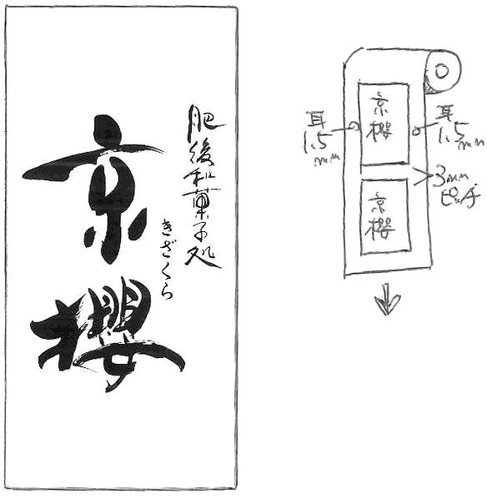 肥後和菓子処
きざくら
京櫻
京櫻
京櫻
耳
1.5mm
耳
1.5mm
3mm
ピッチ